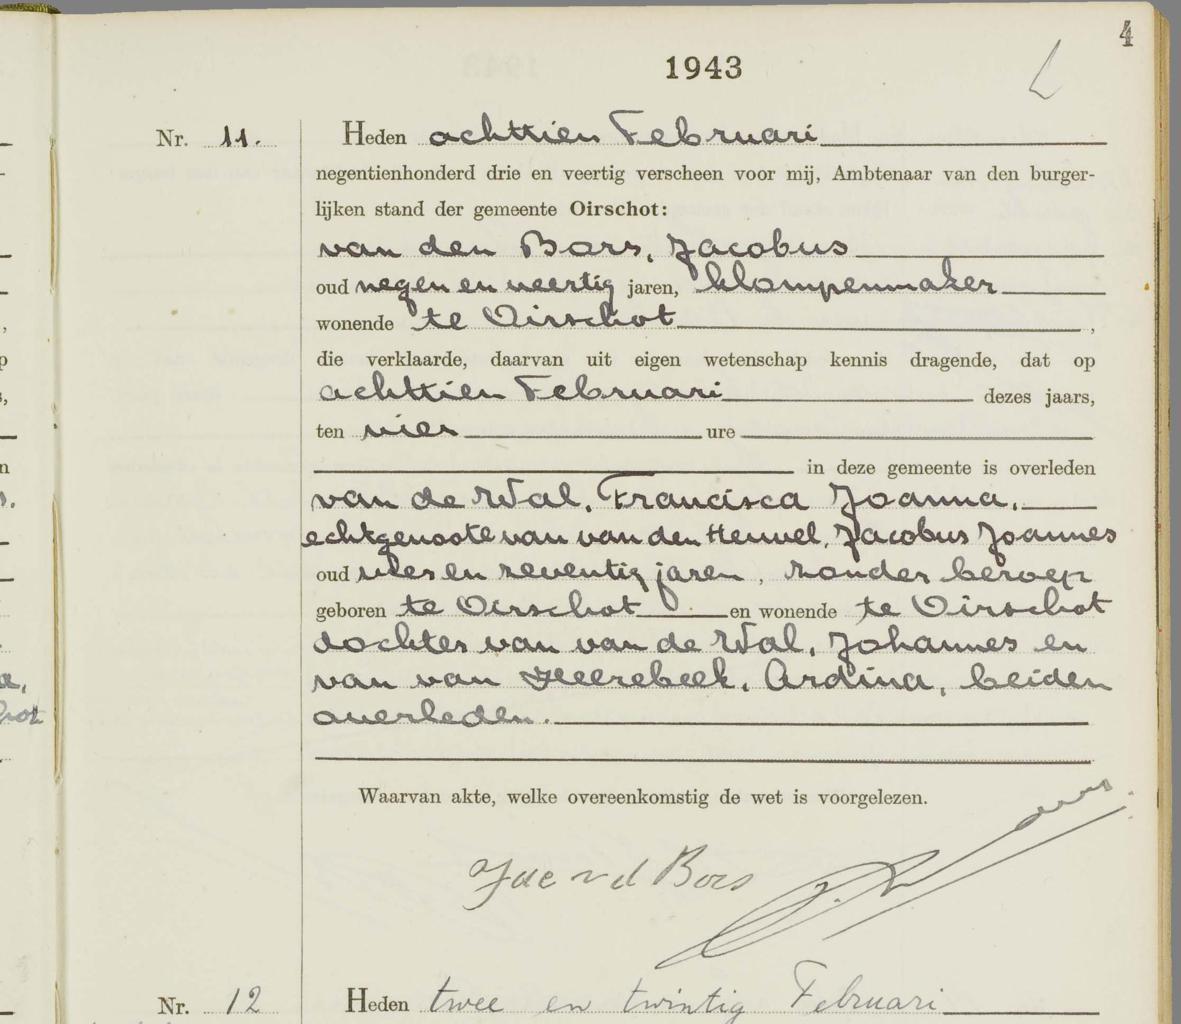 4
1943
L
Nr. 11. Heden achttien Februari
negentienhonderd drie en veertig verscheen voor mij, Ambtenaar van den burger-
lijken stand der gemeente Oirschot:
van den Bors, Jacobus
oud negen en veertig jaren, klompenmaker
wonende te Oirschot,
die verklaarde, daarvan uit eigen wetenschap kennis dragende, dat op
achttien Februari dezes jaars,
ten vier ure
in deze gemeente is overleden
van de Wal, Francisca Joanna,
echtgenoote van van den Heuvel, Jacobus Joannes
oud vier en zeventig jaren, zonder beroep
geboren te Oirschot en wonende te Oirschot
dochter van van de Wal, Johannes en
van van Heerebeek, Ardina, beiden
overleden.
Waarvan akte, welke overeenkomstig de wet is voorgelezen.
Jac v d Bors
Nr. 12 Heden twee en twintig Februari